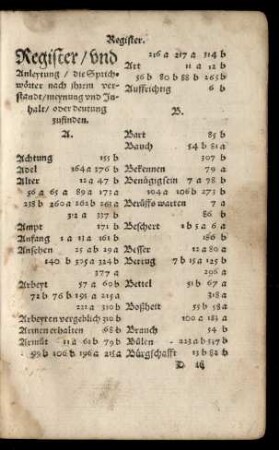 Register.
Register/vnd
Anleytung/die Sprich-
wörter nach jhrem ver-
standt/meynung vnd In-
halt/oder deutung
zufinden.
A.
Achtung 155 b
Adel 264 a 376 b
Alter 12 a 47 b
56 a 65 a 89 a 173 a
238 b 260 a 261 b 263 a
312 a 337 b
Ampt 171 b
Anfang 1 a 13 a 161 b
Ansehen 25 a b 29 a
140 b 305 a 324 b
377 a
Arbeyt 57 a 60 b
72 b 76 b 193 a 215 a
221 a 310 b
Arbeyten vergeblich 310 b
Armen erhalten 68 b
Armůt 11 a b 79 b
99 b 106 b 196 a 218 a
216 a 217 a 314 b
Art 11 a 12 b
56 b 80 b 88 b 265 b
Auffrichtig 6 b
B.
Bart 85 b
Bauch 54 b 81 a
307 b
Bekennen 79 a
Benügig sein 7 a 78 b
104 a 106 b 273 b
Berůffs warten 7 a
86 b
Beschert 1 b 5 a 6 a
186 b
Besser 12 a 80 a
Betrug 7 b 15 a 125 b
296 a
Bettel 51 b 67 a
318 a
Boßheit 55 b 58 a
100 a 183 a
Brauch 54 b
Bůlen 223 a b 347 b
Bürgschafft 13 b 82 b
D